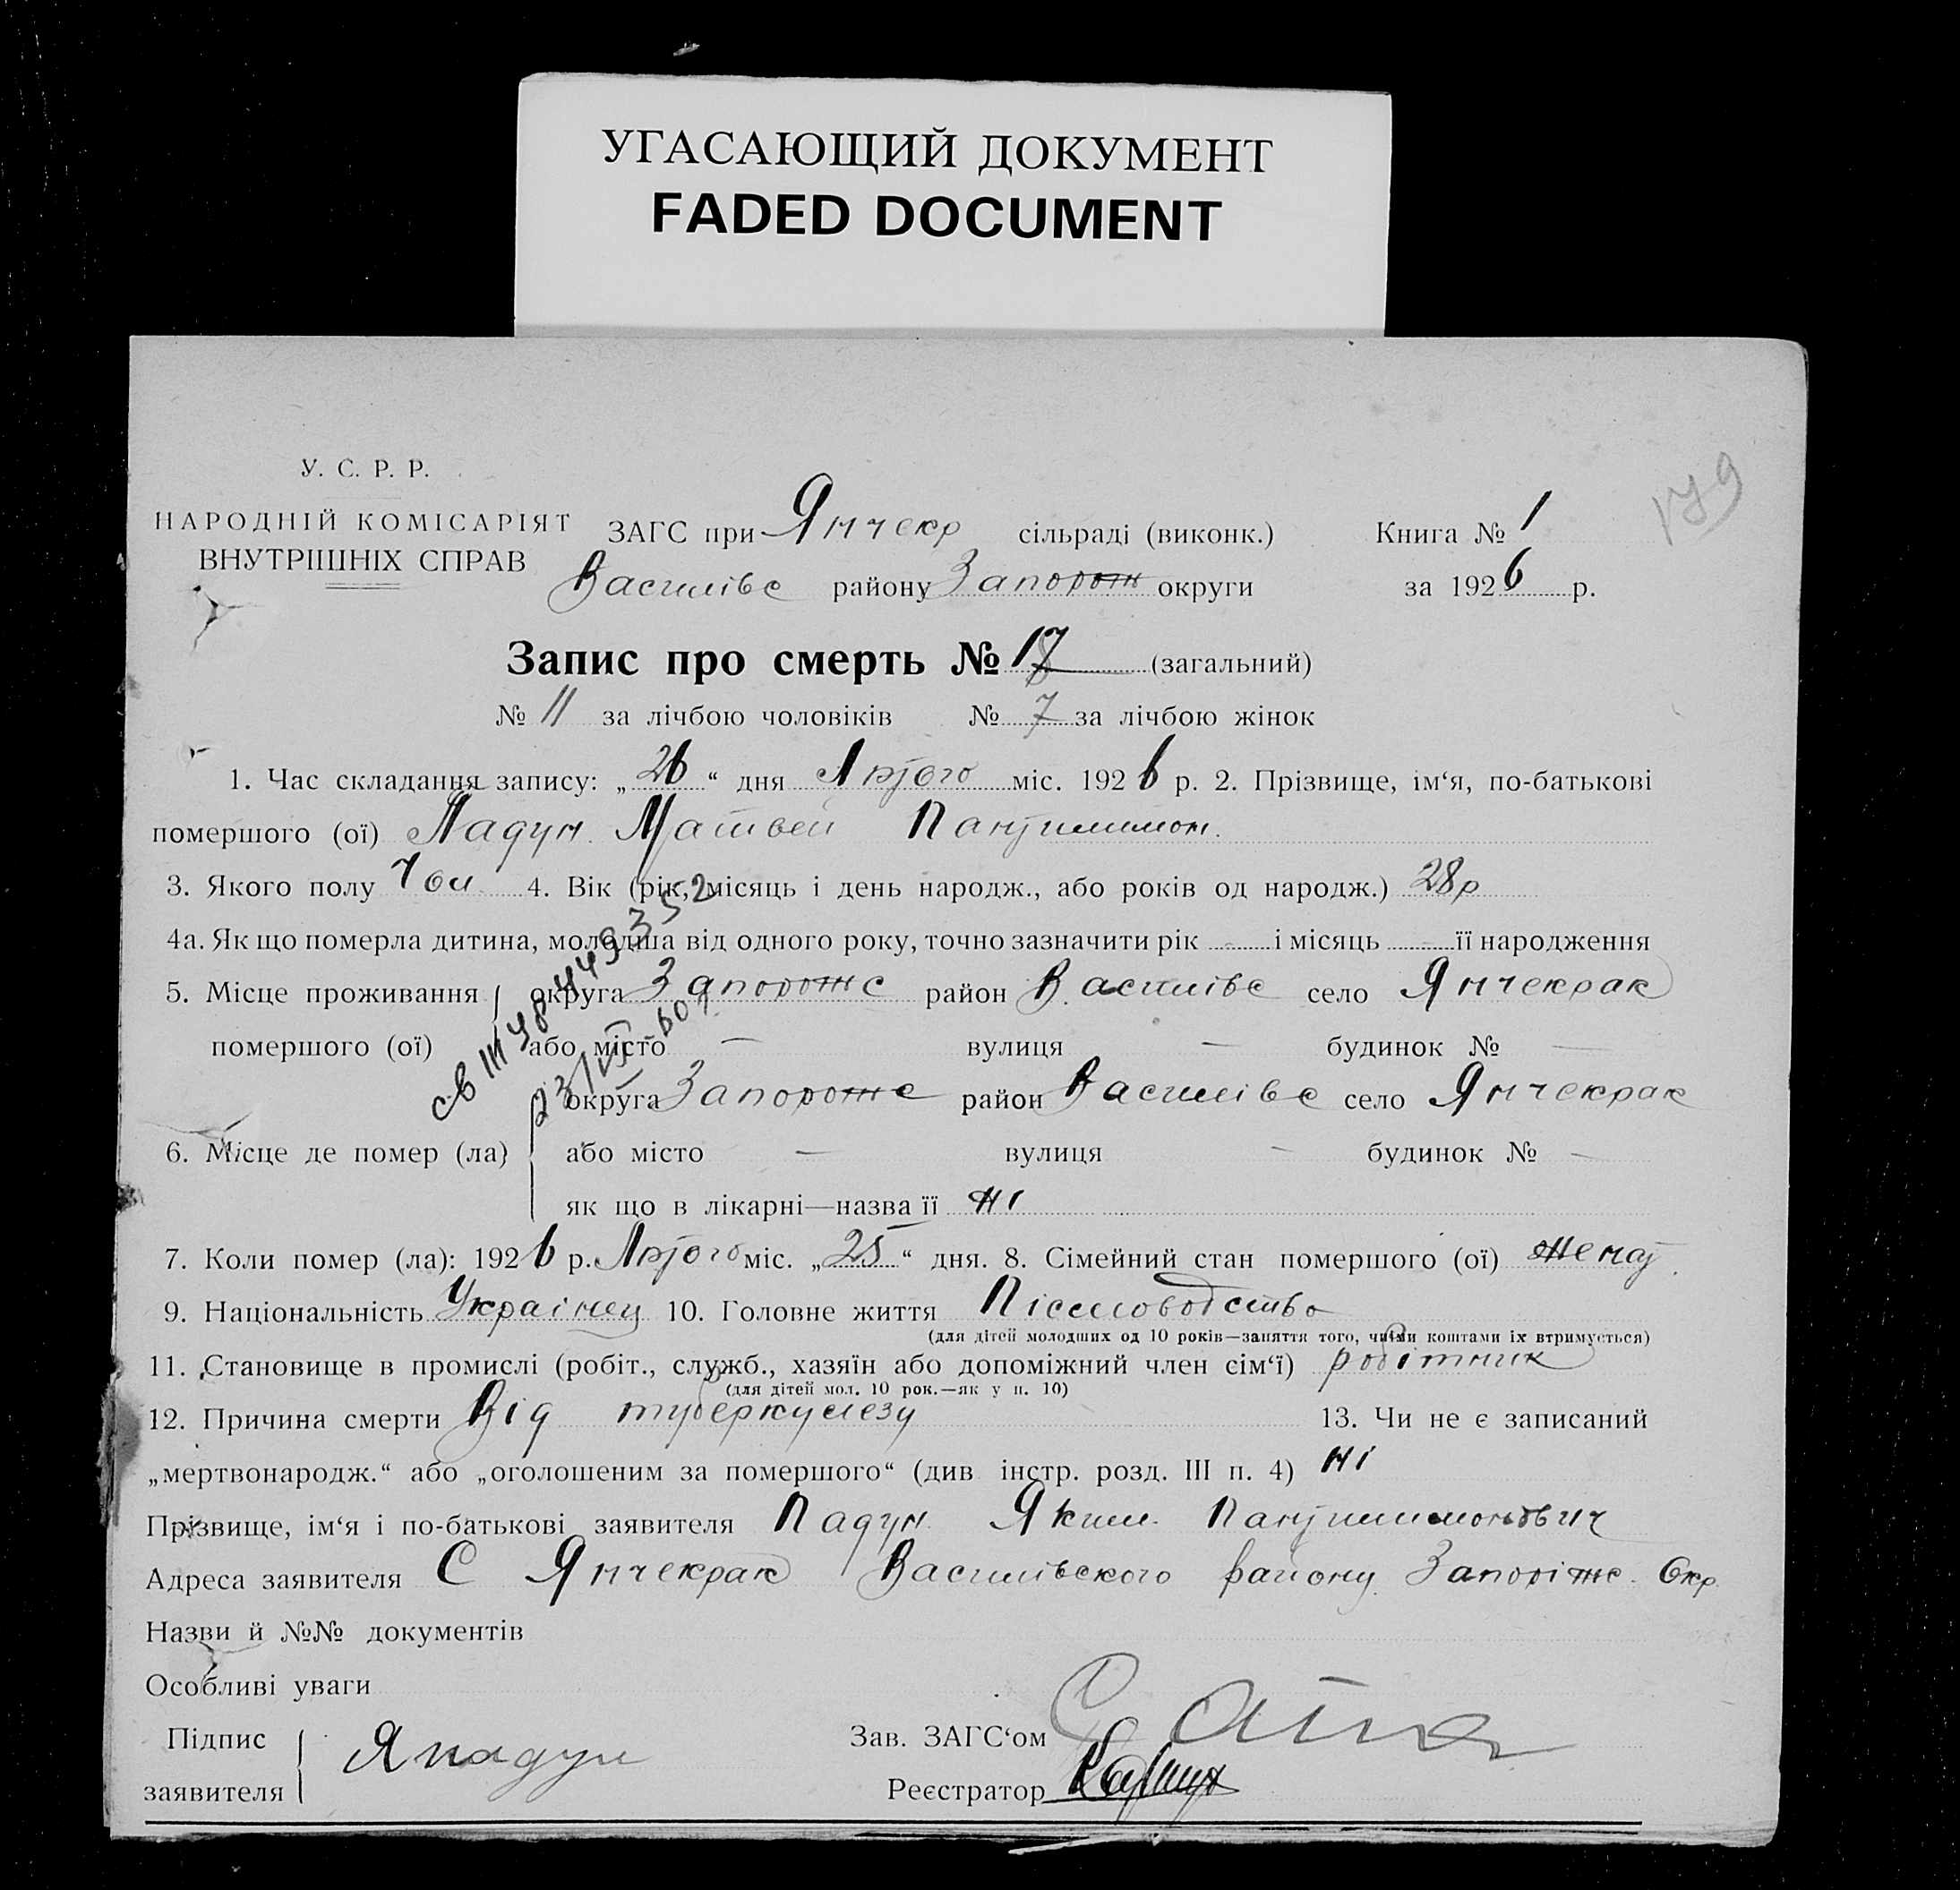 УГАСАЮЩИЙ ДОКУМЕНТ
FADED DOCUMENT
179
У. С. Р. Р.
НАРОДНІЙ КОМІСАРІЯТ
ВНУТРІШНІХ СПРАВ
ЗАГС при Янчекр сільраді (виконк.) Книга № 1
Василівс району Запорож округи за 1926 р.
Запис про смерть № 17 (загальний)
№ 11 за лічбою чоловіків № 7 за лічбою жінок
1. Час складання запису: „26“ дня Лютого міс. 1926 р. 2. Прізвище, ім‘я, по-батькові
помершого (ої) Падун Матвей Пантилимон.
3. Якого полу Чол 4. Вік (рік, місяць і день народж., або років од народж.) 28р
4а. Як що померла дитина, молодша від одного року, точно зазначити рік — і місяць — її народження
5. Місце проживання округа Запорожс район Василівс село Янчекрак
помершого (ої) або місто — вулиця — будинок № —
округа Запорожс район Василівс село Янчекрак
6. Місце де помер (ла) або місто — вулиця — будинок № —
як що в лікарні—назва її ні
7. Коли помер (ла): 1926 р. Лютого міс. „25“ дня. 8. Сімейний стан помершого (ої) женат
9. Національність Українец 10. Головне життя
(для дітей молодших од 10 років—заняття того, чиїми коштами їх втримується)
11. Становище в промислі (робіт., служб., хазяїн або допоміжний член сім‘ї) робітник
(для дітей мол. 10 рок.—як у п. 10)
12. Причина смерти Від туберкульозу 13. Чи не є записаний
„мертвонародж.“ або „оголошеним за помершого“ (див інстр. розд. III п. 4) ні
Прізвище, ім‘я і по-батькові заявителя Падун Яким Пантилимонович
Адреса заявителя С Янчекрак Василівского району Запоріж. Окр.
Назви й №№ документів
Особливі уваги
Підпис заявителя Я падун
Зав. ЗАГС‘ом
Реєстратор